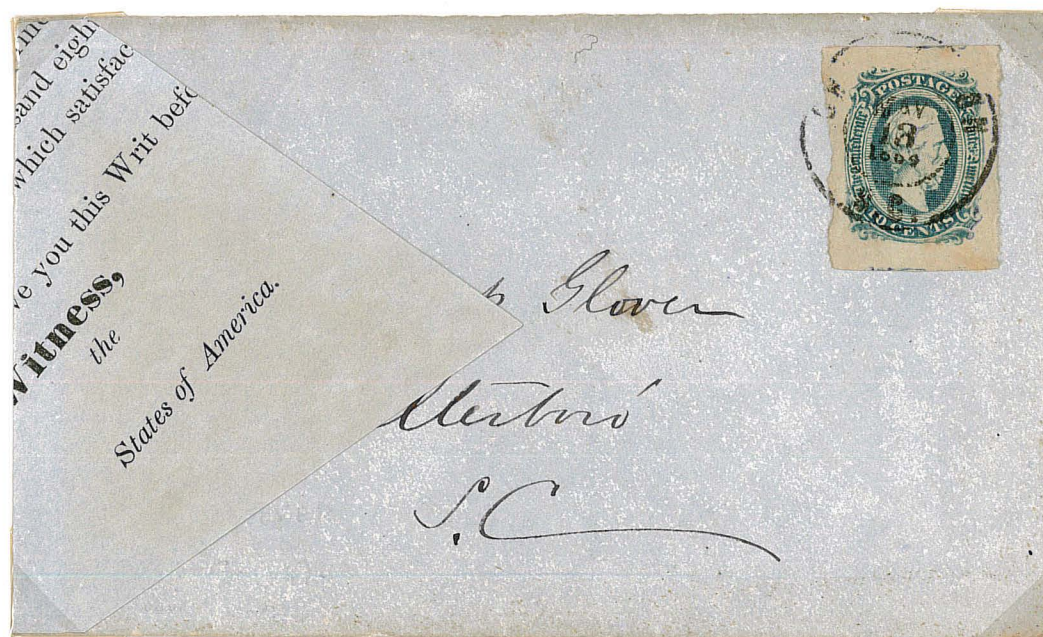 sand eigh
which satisfac
ve you this Writ befo
Witness,
the
States of America.
POSTAGE
18
TEN CENTS
Glover
lterboro'
S.C